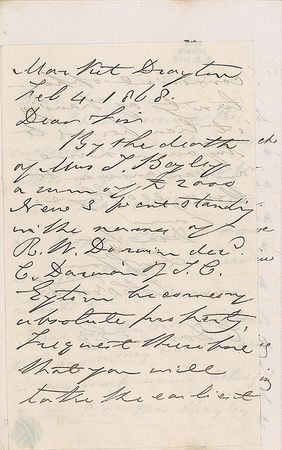 Market Drayton
Feb 4. 1868
Dear Sir
By the death
of Mrs T. Bayley
a sum of £2000
New 3 p cent standing
in the names of
R. W. Darwin decd.
C. Darwin & T. C.
Eyton becomes my
absolute property,
I request therefore
that you will
take the earliest